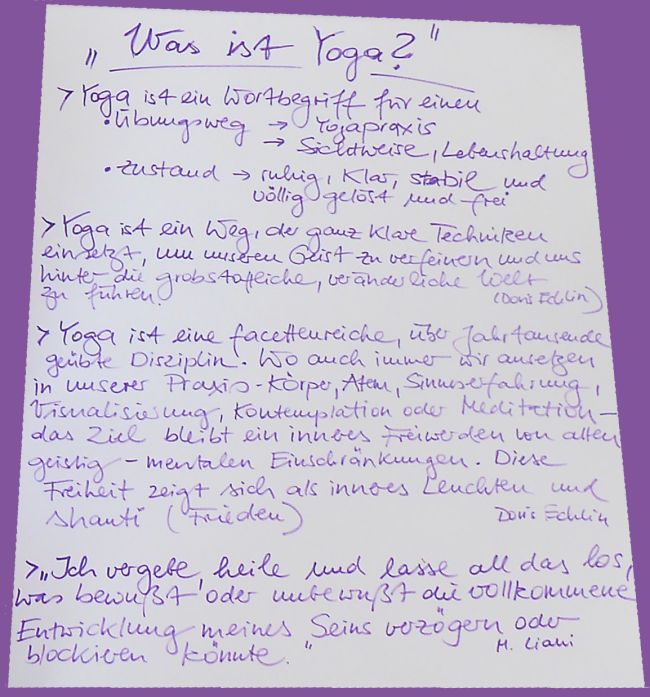 „Was ist Yoga?"
> Yoga ist ein Wortbegriff für einen
• Übungsweg → Yogapraxis
→ Sichtweise, Lebenshaltung
• Zustand → ruhig, klar, stabil und
völlig gelöst und frei
> Yoga ist ein Weg, der ganz klare Techniken
einsetzt, um unseren Geist zu verfeinern und uns
hinter die grobstoffliche, veränderliche Welt
zu führen. (Doris Echlin)
> Yoga ist eine facettenreiche, über Jahrtausende
geübte Disziplin. Wo auch immer wir ansetzen
in unserer Praxis - Körper, Atem, Sinneserfahrung,
Visualisierung, Kontemplation oder Meditation –
das Ziel bleibt ein inneres Freiwerden von allen
geistig - mentalen Einschränkungen. Diese
Freiheit zeigt sich als inneres Leuchten und
Shanti (Frieden) Doris Echlin
> „Ich vergebe, heile und lasse all das los,
was bewußt oder unbewußt die vollkommene
Entwicklung meines Seins verzögern oder
blockieren könnte." M. Liani